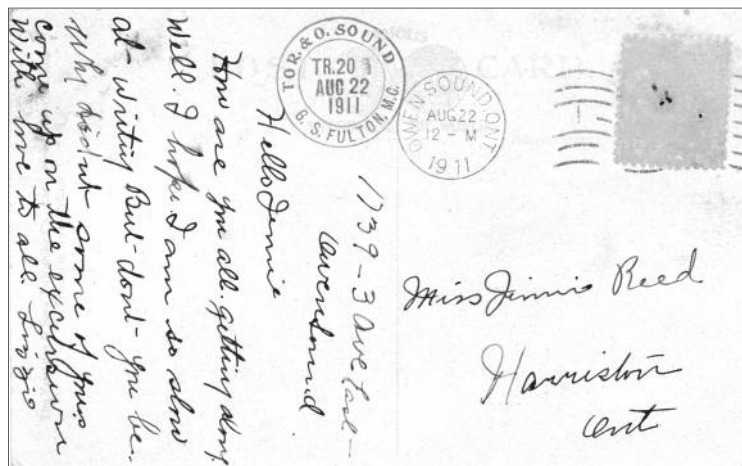 TOR. & O. SOUND
TR.20
AUG 22
1911
G. S. FULTON, M.C.
OWEN SOUND ONT
AUG 22
12 - M
1911
1739-3 Ave East-
Owen Sound
Hello Jinnie
How are you all. getting along
Well. I hope I am so slow
at- writing But- dont- you be.
Why didnt some of yous
come up on the excursion
With love to all. Lizzie
Miss Jinnie Reed
Harriston
Ont